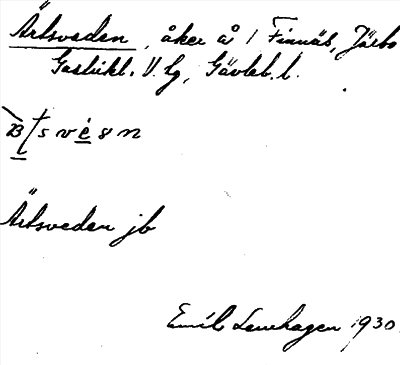 Ärtsveden, åker å 1 Finnäs, Järbo
Gästrikl. V. lg, Gävleb. l.
Ärtsveden jb
Emil Lenhagen 1930